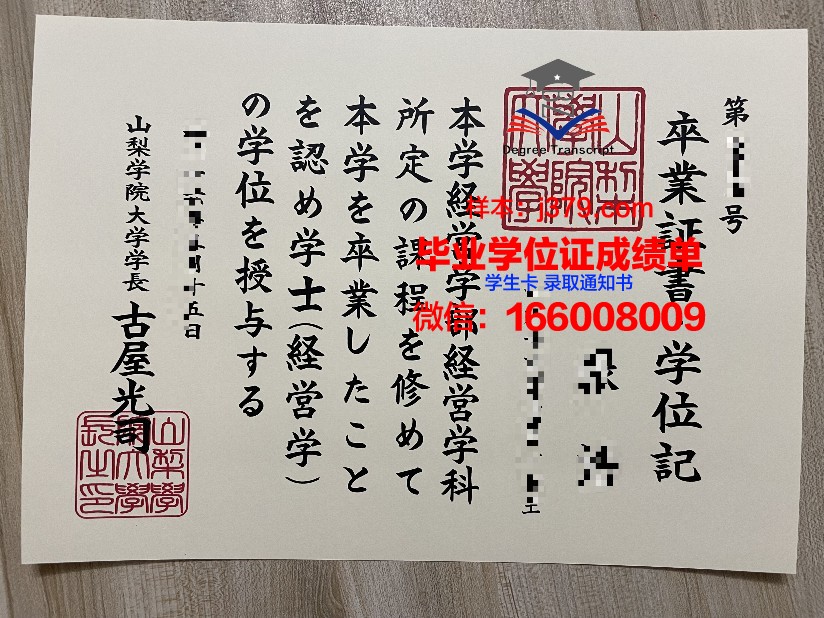 第
号
卒業証書・学位記
本学経営学部経営学科
所定の課程を修めて
本学を卒業したこと
を認め学士(経営学)
の学位を授与する
十五日
山梨学院大学学長 古屋光司
山梨学院大学
Degree Transcript
样本:j379.com
毕业学位证成绩单
学生卡 录取通知书
微信:166008009